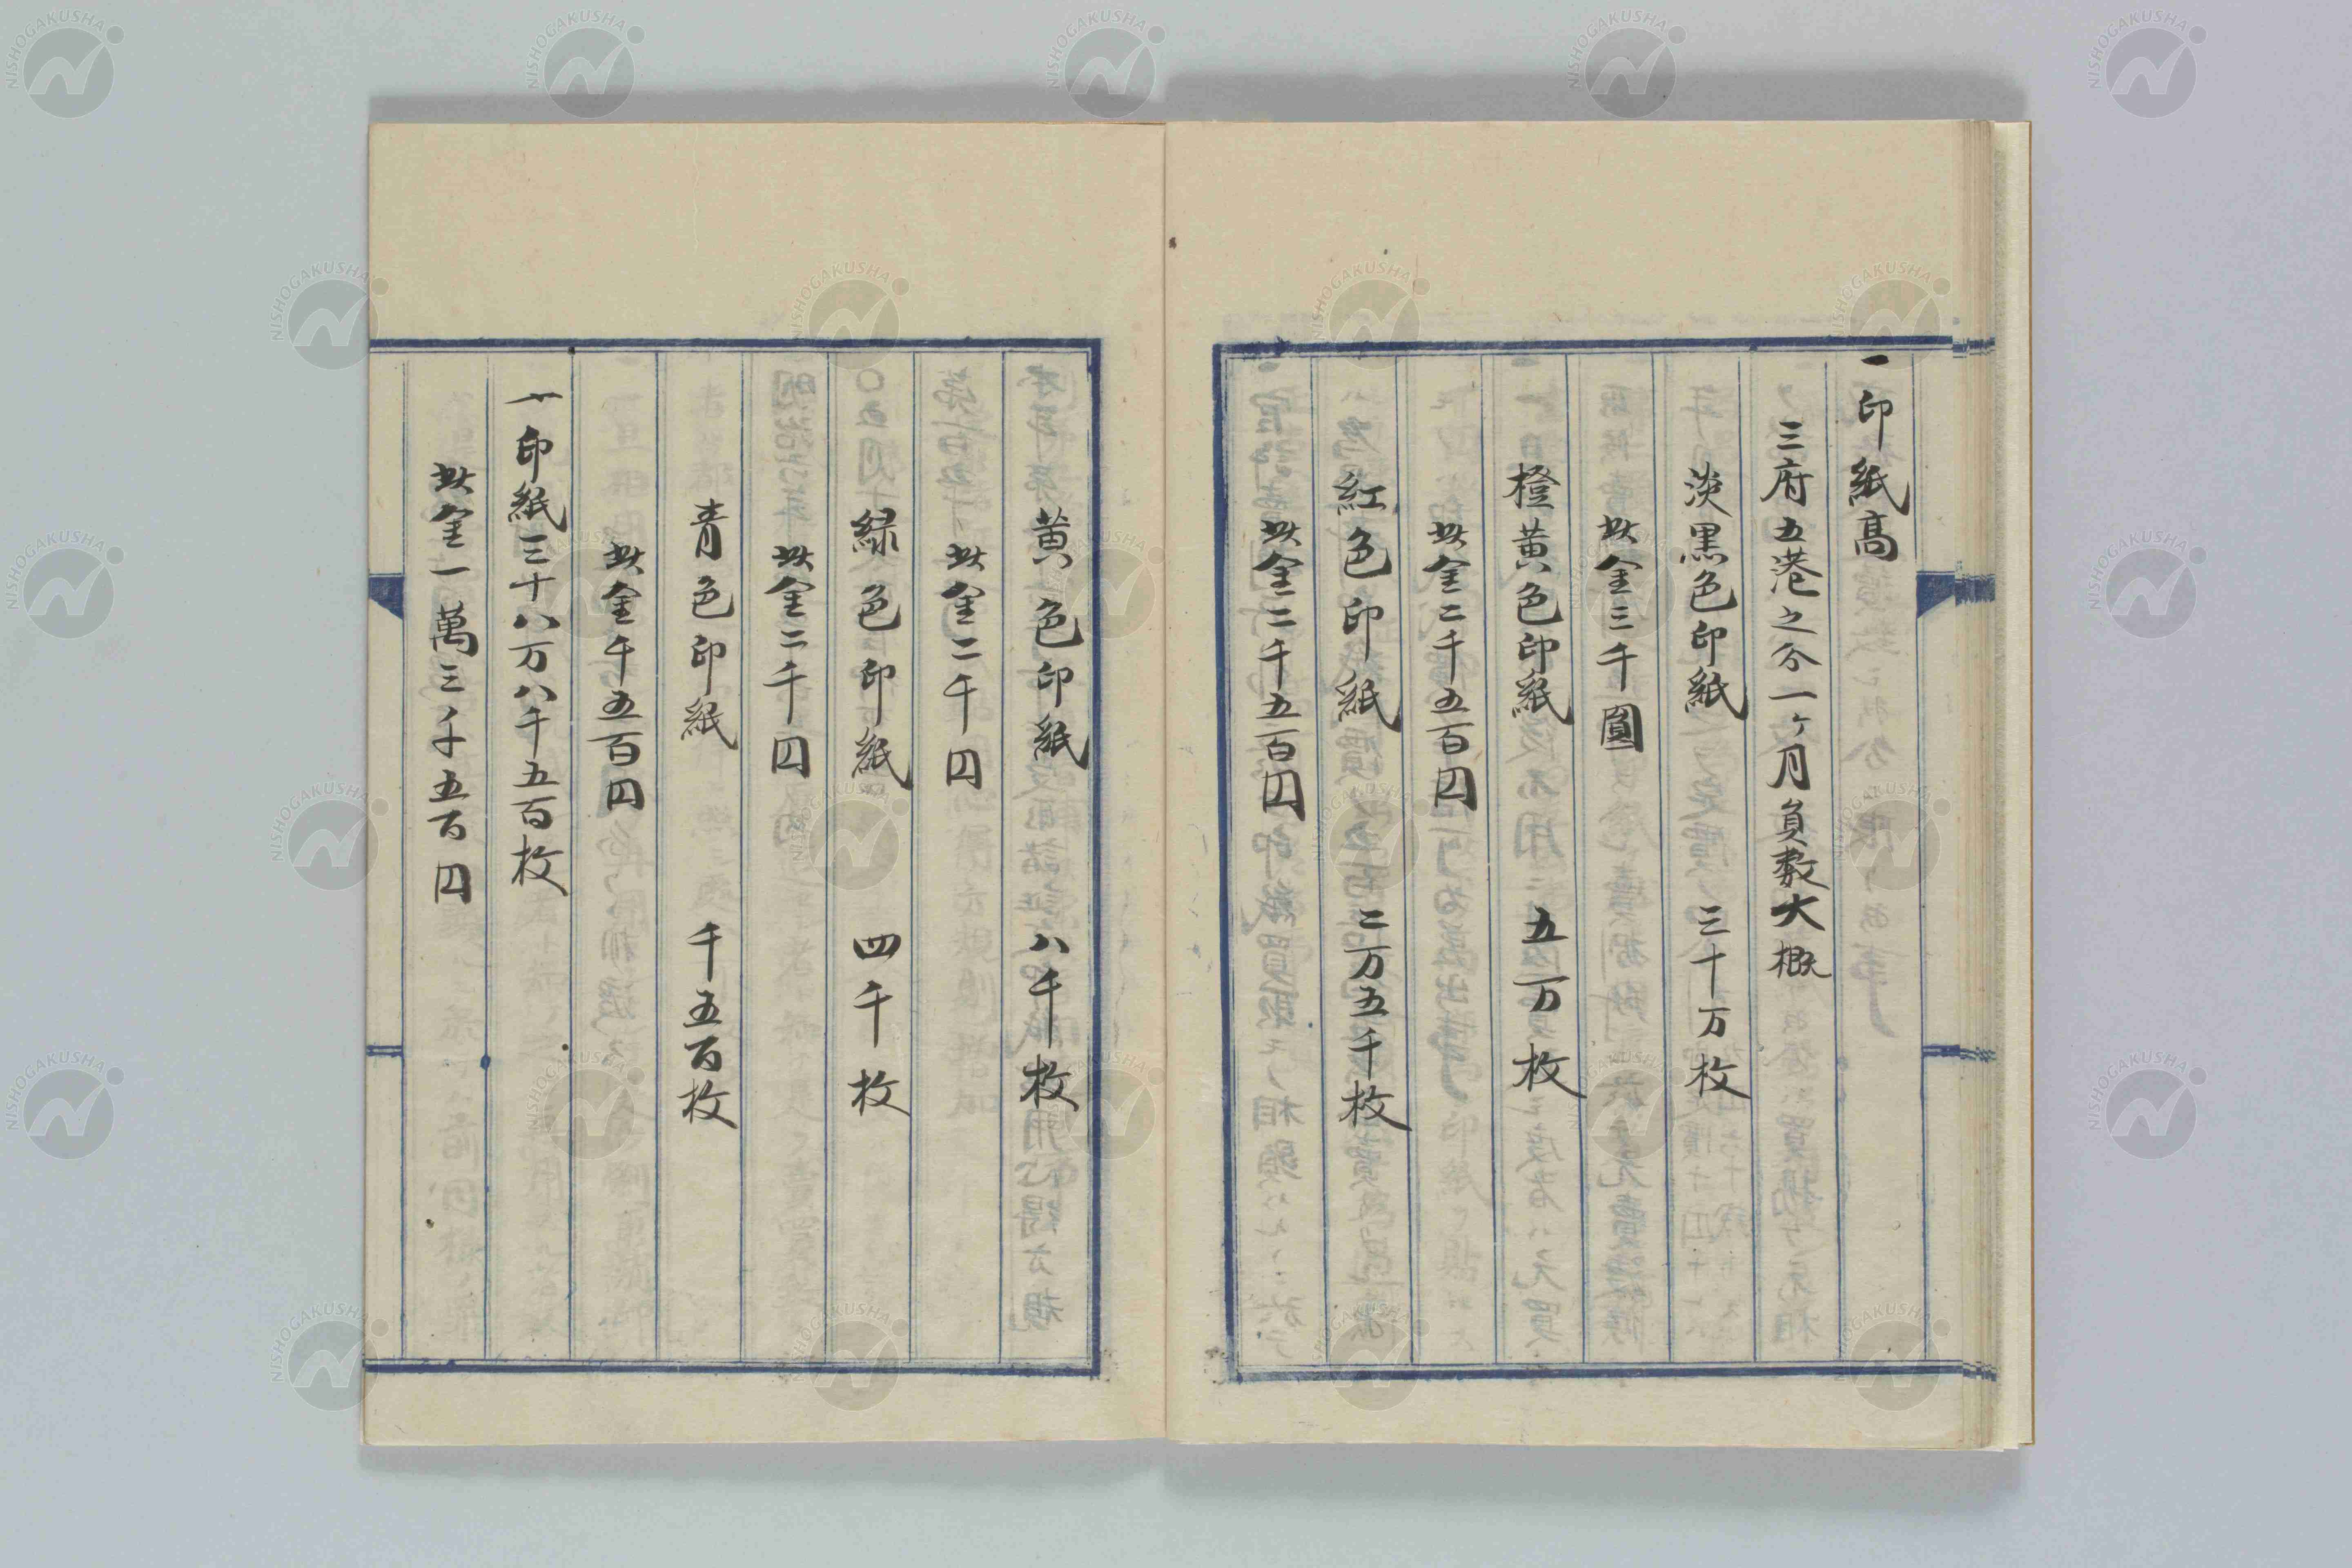 一印紙高
三府五港之分一ヶ月負数大概
淡黒色印紙 三十万枚
此金三千圓
橙黄色印紙 五万枚
此金二千五百円
紅色印紙 二万五千枚
此金二千五百円
黄色印紙 八千枚
此金二千円
緑色印紙 四千枚
此金二千円
青色印紙 千五百枚
此金千五百円
一印紙三十八万八千五百枚
此金一萬三千五百円
NISHOGAKUSHA